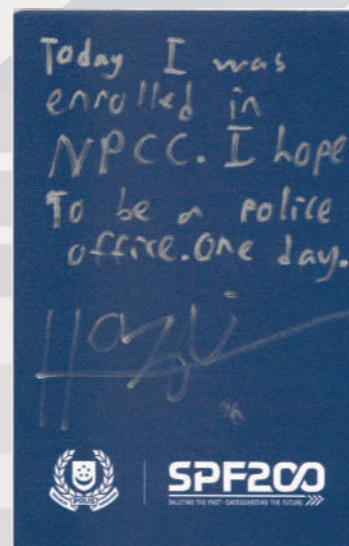 Today I was
enrolled in
NPCC. I hope
To be a police
office. One day.
Hazli
POLICE
SPF200
SALUTING THE PAST • SAFEGUARDING THE FUTURE